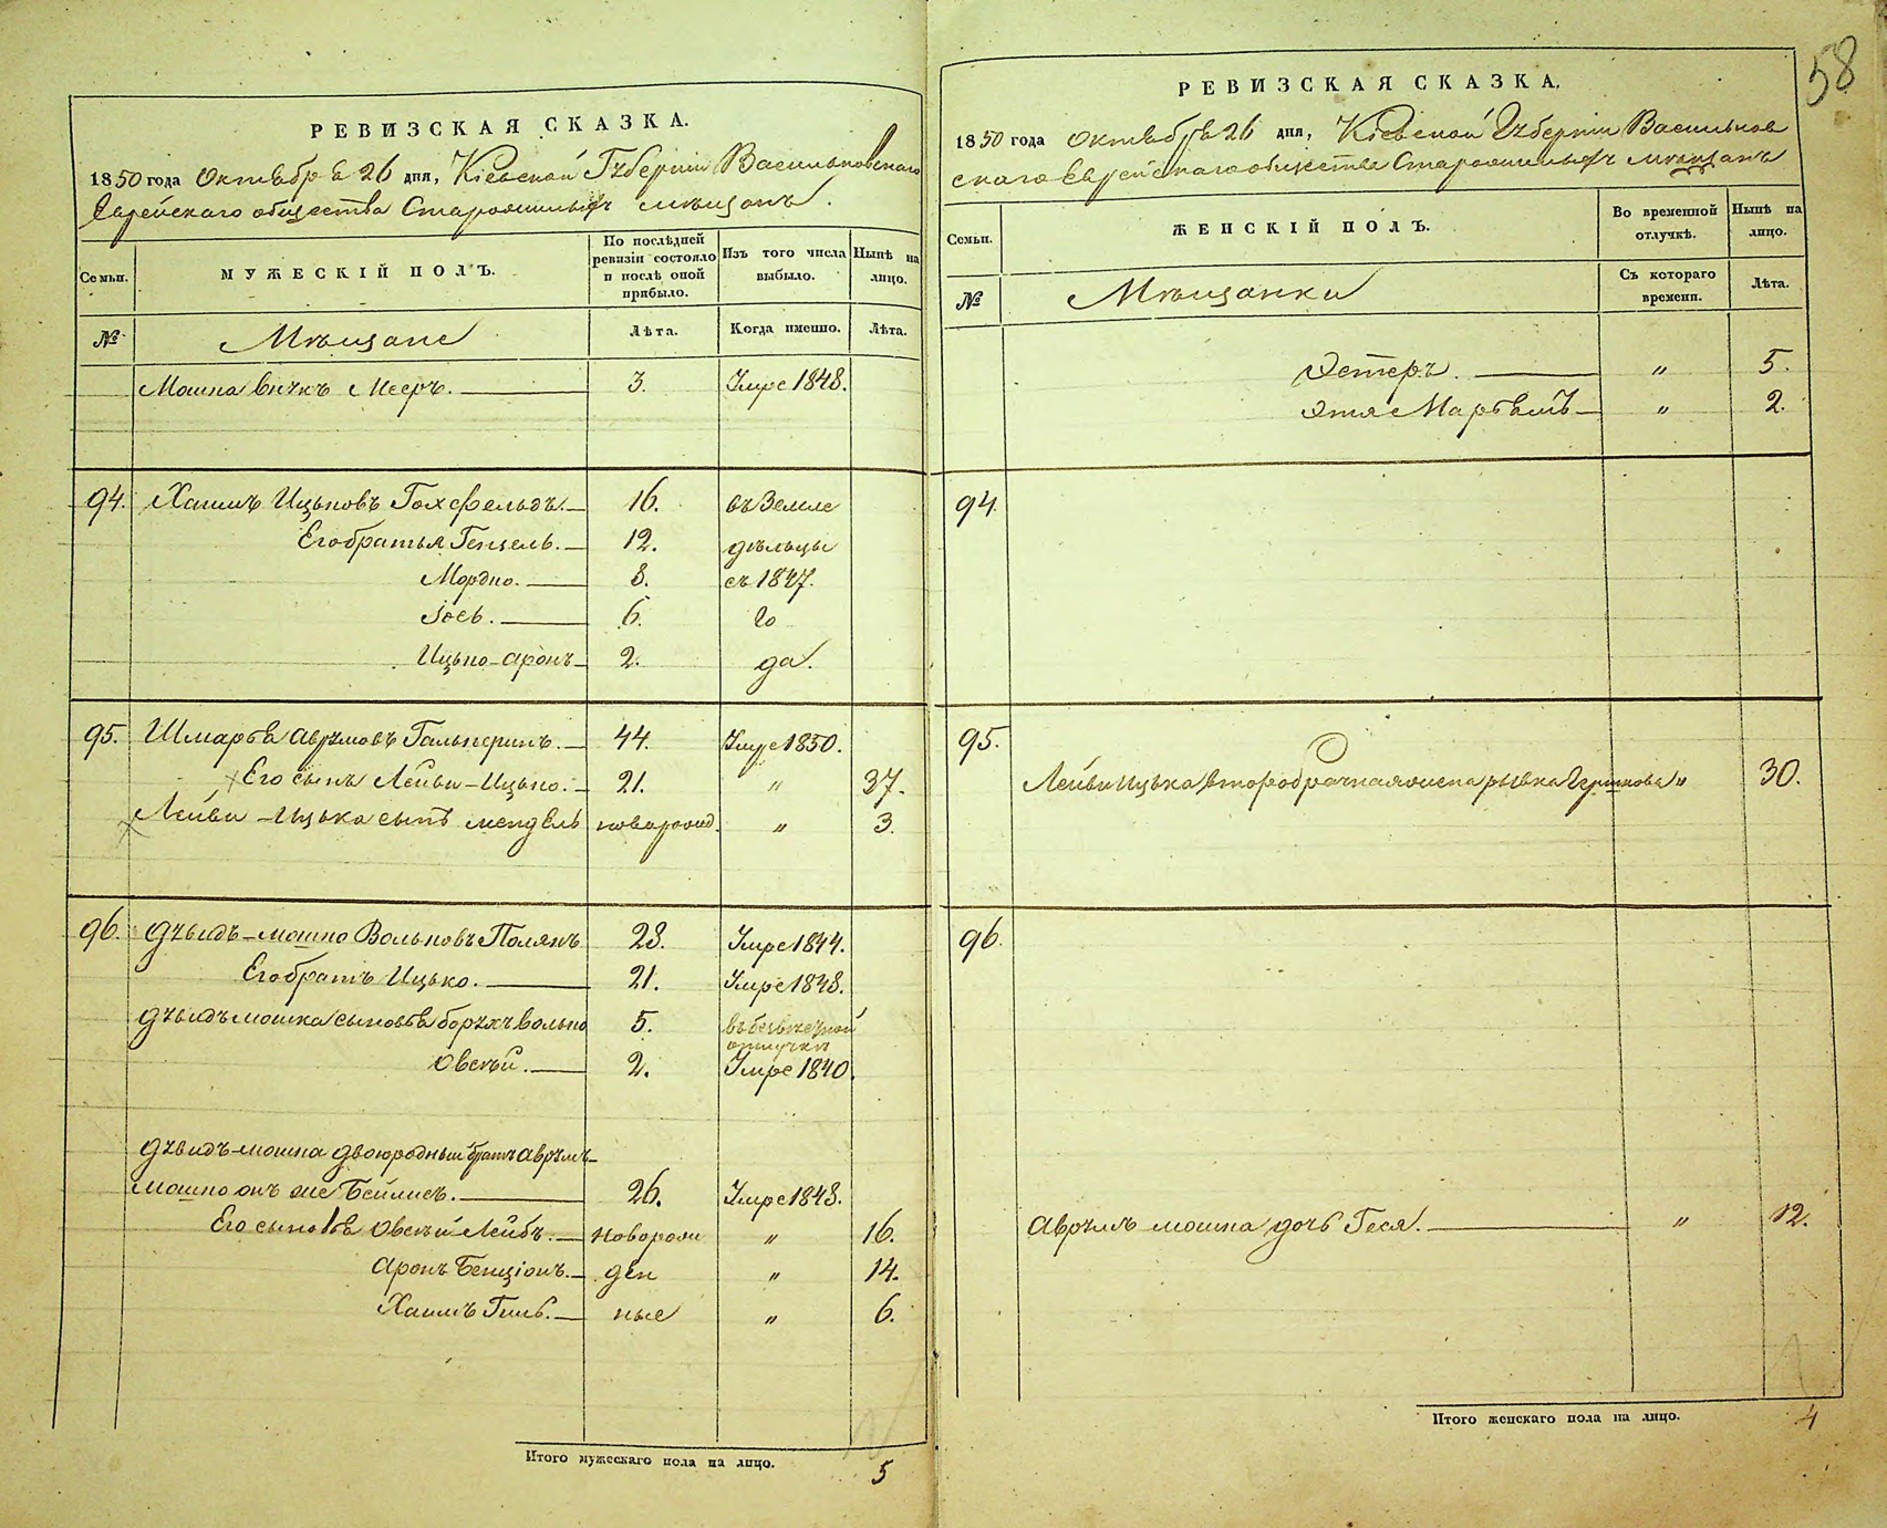 РЕВИЗСКАЯ СКАЗКА.
1850 года Октября 26 дня, Кіевской Губерніи Васильковскаго
Еврейскаго общества Старожилыхъ мѣщанъ.
Семьи.
МУЖЕСКІЙ ПОЛЪ.
По послѣдней ревизіи состояло и послѣ оной прибыло.
Изъ того числа выбыло.
Нынѣ на лицо.
№
Мѣщане
Лѣта.
Когда именно.
Лѣта.
Мошка внукъ Мееръ. 3. Умре 1848.
94. Хаимъ Ицьковъ Гохфельдъ. 16. въ Земле
Его братья Генцель. 12. дѣльцы
Мордко. 8. съ 1847.
Іось. 6. го
Ицько-Аронъ 2. да.
95. Шмарья Аврумовъ Гальперинъ. 44. Умре 1850.
Его сынъ Лейви-Ицько. 21. " 37.
Лейви-Ицька сынъ Мендель новарожд. " 3.
96. Дувидъ-Мошко Вольковъ Полякъ 28. Умре 1844.
Его братъ Ицько. 21. Умре 1848.
Дувидъ мошка сыновья Борухъ Волько 5. въ безвѣстной
отлучки
Овсѣй. 2. Умре 1840.
Дувидъ-мошка двоюродный братъ Аврумъ-
мошко онъ же Бейлисъ. 26. Умре 1848.
Его сыновья Овсѣй Лейбъ. новорож " 16.
Аронъ Бенціонъ. ден " 14.
Хаимъ Гит. ные " 6.
Итого мужескаго пола на лицо. 5
58
РЕВИЗСКАЯ СКАЗКА.
1850 года Октября 26 дня, Кіевской Губерніи Васильков
скаго Еврейскаго общества Старожилыхъ мѣщанъ
Семьи.
ЖЕНСКІЙ ПОЛЪ.
Во временной отлучкѣ.
Нынѣ на лицо.
№
Мѣщанки
Съ котораго времени.
Лѣта.
Эстеръ. " 5.
Этя Марьемъ " 2.
94.
95.
Лейви Ицька второбрачная жена Рывка Гершкова " 30.
96.
Аврумъ мошка дочь Геся. " 12.
Итого женскаго пола на лицо. 4